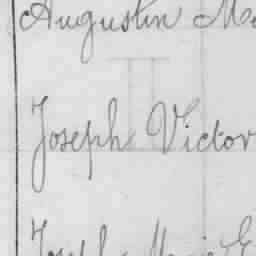 Augustin
Joseph Victor
Joseph